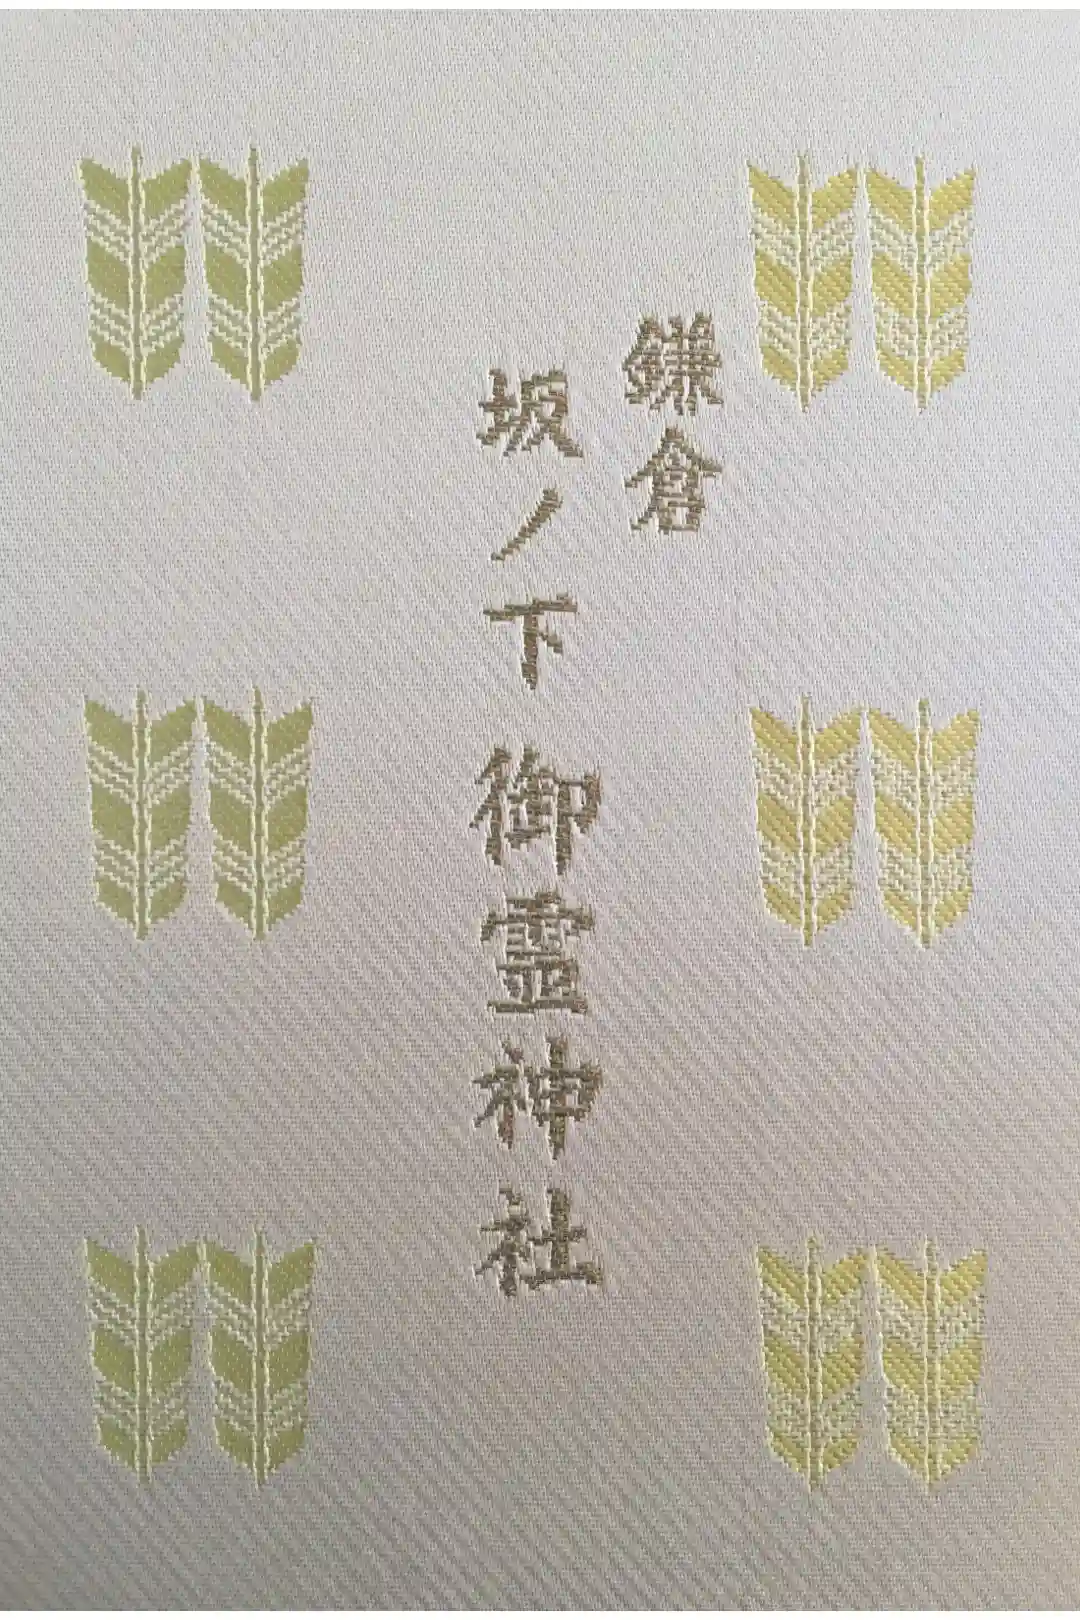 鎌倉
坂ノ下御霊神社